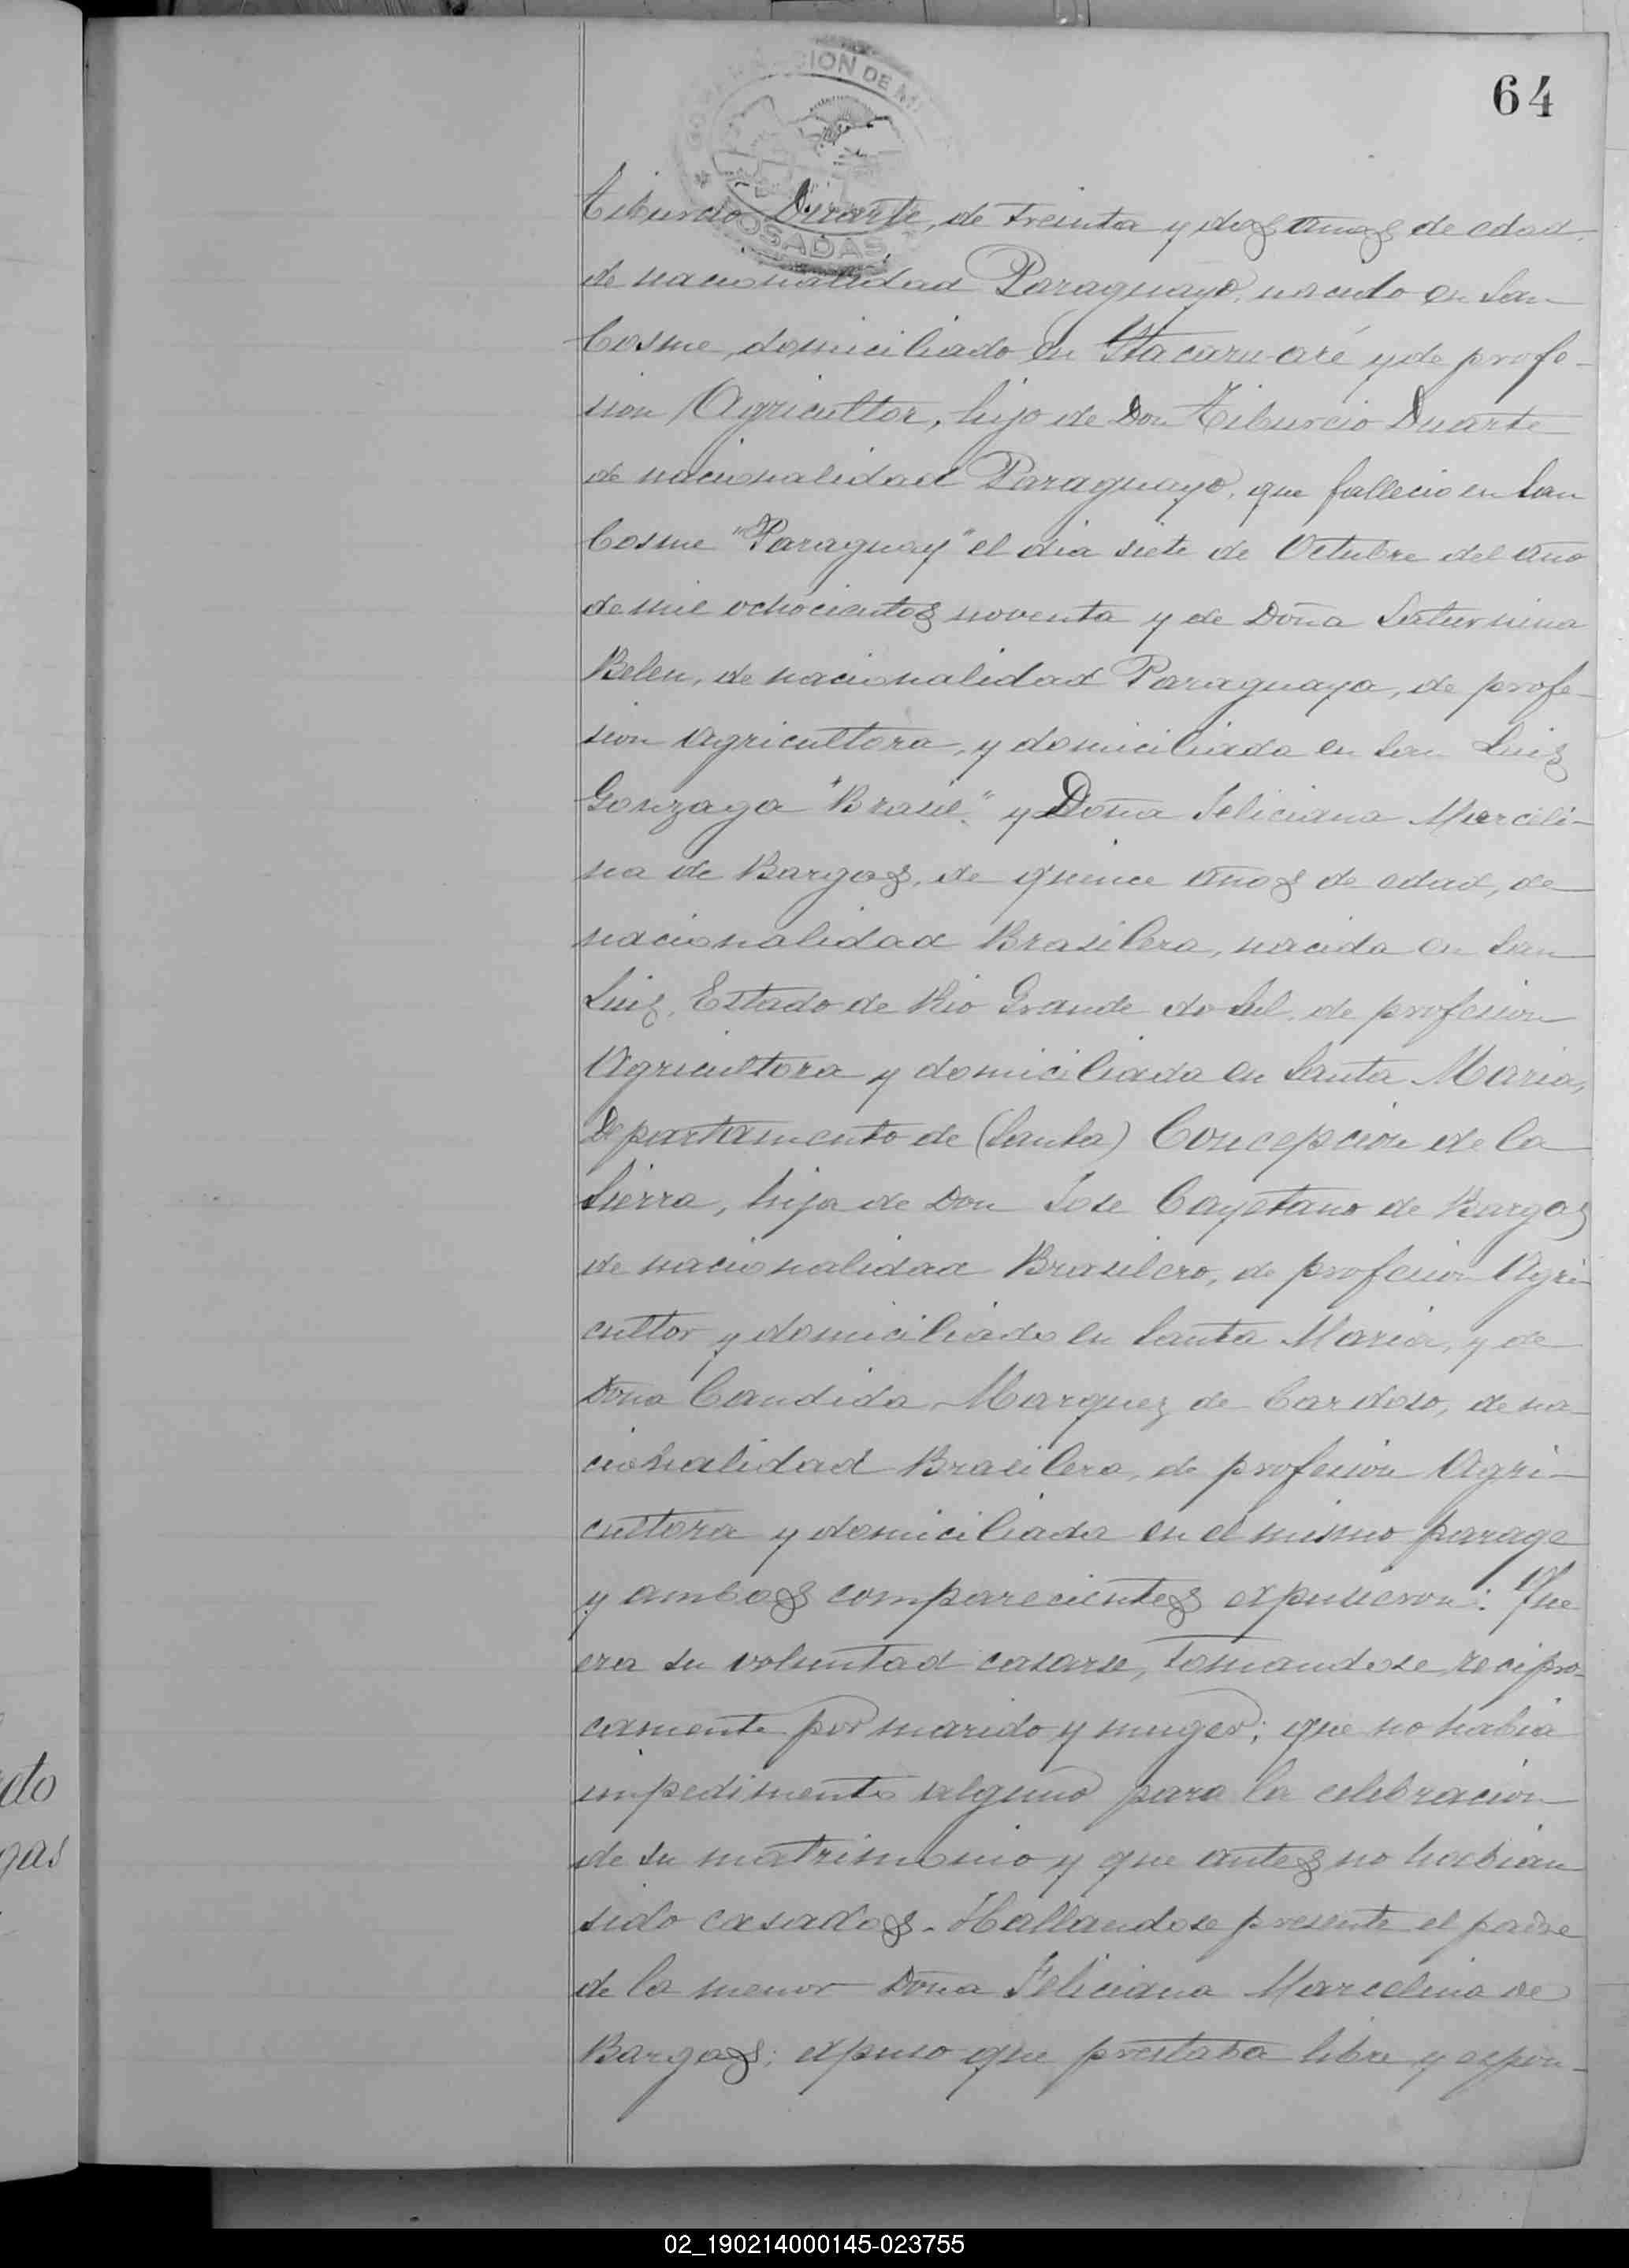 64
GOBERNACION DE MI
POSADAS
Tiburcio Duarte, de treinta y dos años de edad,
de nacionalidad Paraguayo, nacido en San
Cosme, domiciliado en Itacaru-aré y de profe-
sion Agricultor, hijo de Don Tiburcio Duarte
de nacionalidad Paraguayo, que fallecio en San
Cosme "Paraguay" el dia siete de Octubre del año
de mil ochocientos noventa y de Doña Saturnina
Belen, de nacionalidad Paraguaya, de profe-
sion Agricultora, y domiciliada en San Luis
Gonzaga "Brasil" y Doña Feliciana Marceli-
na de Bargas, de quince años de edad, de
nacionalidad Brasilera, nacida en San
Luis, Estado de Rio Grande do Sul, de profesion
Agricultora y domiciliada en Santa Maria,
Departamento de (Santa) Concepcion de la
Sierra, hija de Don Jose Cayetano de Bargas
de nacionalidad Brasilero, de profesion Agri-
cultor y domiciliado en Santa Maria, y de
Doña Candida Marquez de Cardoso, de na-
cionalidad Brasilera, de profesion Agri-
cultora y domiciliada en el mismo parage
y ambos comparecientes expusieron: Que
era su voluntad casarse, tomandose recipro-
camente por marido y muger; que no habia
impedimento alguno para la celebracion
de su matrimonio y que antes no habian
sido casados. Hallandose presente el padre
de la menor Doña Feliciana Marcelina de
Bargas; expuso que prestaba libre y espon-
gas
02_190214000145-023755